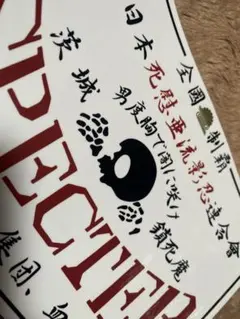 全國制覇
日本死慰亜流影忍連合會
茨城
男度胸で闇に咲け 鎮死魔
SPECTER
集団、